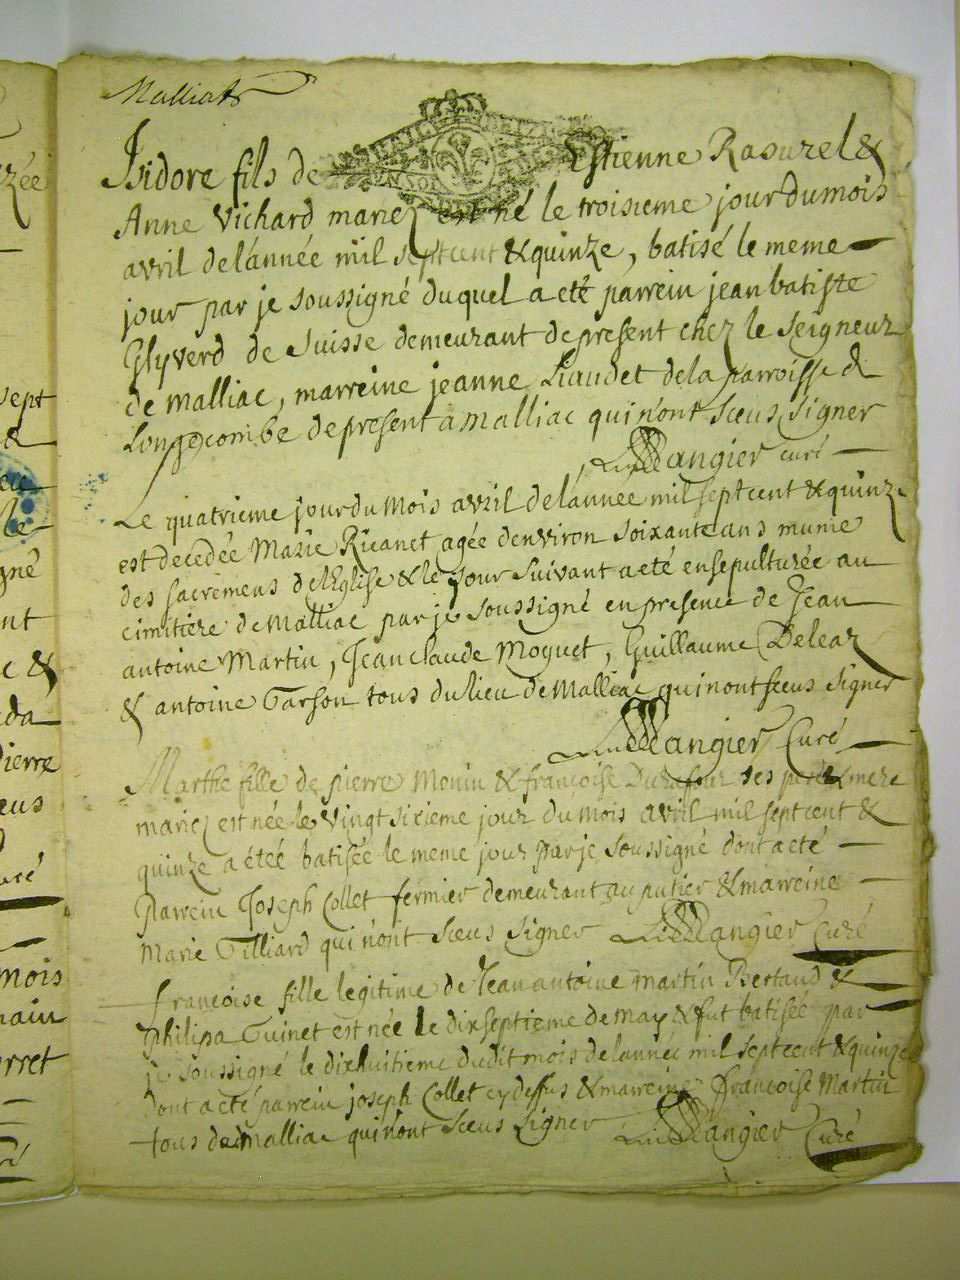 Malliat
Isidore fils de Estienne Rasurel &
Anne Vichard mariez est né le troisieme jour du mois
avril de lánnée mil sept cent & quinze, batisé le meme
jour par je soussigné duquel a eté parrein jean batiste
Glyverd de Suisse demeurant de present chez le Seigneur
de Malliac, marreine jeanne Liaudet de la parroisse de
Longecombe de present a Malliac qui n'ont sceus signer
Mangier curé
Le quatrieme jour du mois avril de lánnee mil sept cent & quinze
est decedée Marie Ricanet agée d'environ soixante ans munie
des sacremens de l'Eglise & le jour suivant a eté ensepulturée au
cimitiere de Malliac par je soussigné en presence de Jean
antoine Martin, Jean claude Moquet, Guillaume Deleaz
& antoine Tarson tous du lieu de Malliac qui n'ont sceus signer
Mangier Curé
Marthe fille de pierre Monin & francoise Durafour ses pere & mere
mariez est née le vingt sixieme jour du mois avril mil sept cent &
quinze a étéé batisée le meme jour par je soussigné dont a eté
parrein Joseph Collet fermier demeurant au putier & marreine
Marie Tilliard qui n'ont sceus signer Mangier Curé
francoise fille legitime de Jean antoine martin Bertaud &
philipa Guinet est née le dix septieme de may & fut batisée par
je soussigné le dix huitieme dudit mois de lánnée mil sept cent & quinze
dont a eté parrein joseph Collet cy dessus & marreine francoise Martin
tous de malliac qui n'ont sceus signer Mangier Curé